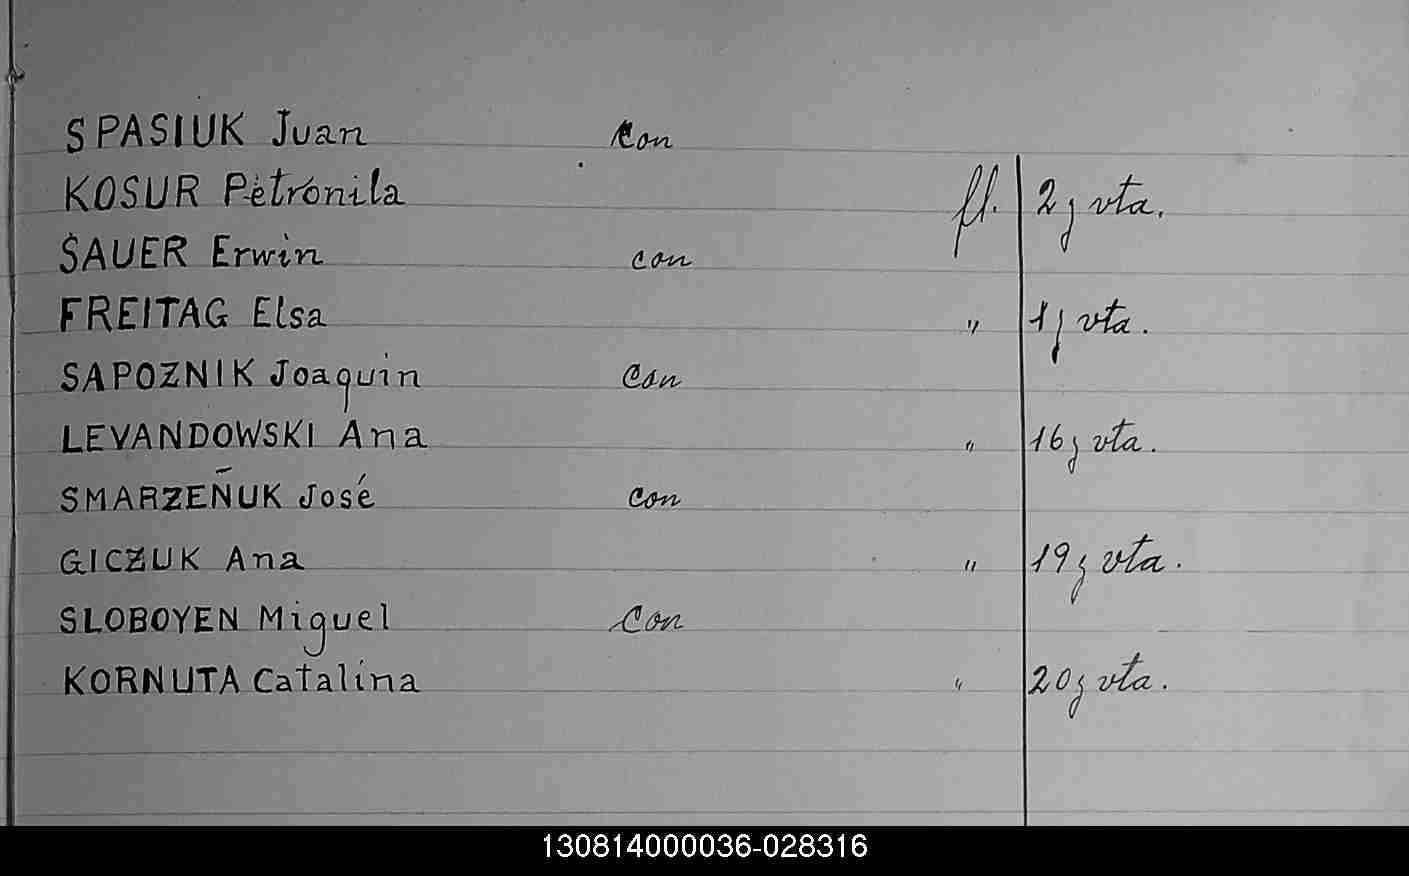 SPASIUK Juan con
KOSUR Petronila fl. 2 y vta.
SAUER Erwin con
FREITAG Elsa " 1 y vta.
SAPOZNIK Joaquin con
LEVANDOWSKI Ana " 16 y vta.
SMARZEÑUK José con
GICZUK Ana " 19 y vta.
SLOBOYEN Miguel con
KORNUTA Catalina " 20 y vta.
130814000036-028316